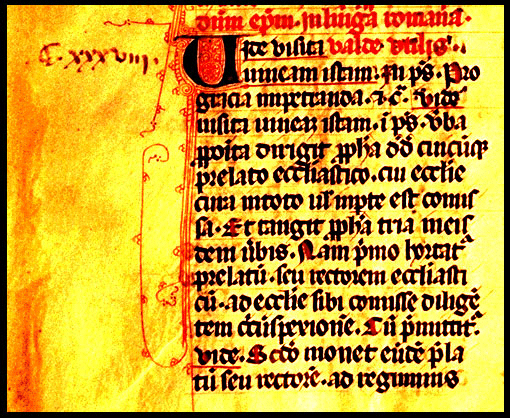 dum ep̄m. in linga romana.
C. xxxviii.
Iste visita valde utilis.
vineam istam. In p̄s. Pro
gracia impetranda. ⁊ c̄. vide
visita vineaz istam. i ps. v̄ba
p̱poīta dirigit p̱pħa dd̄ cuicūqꝫ
prelato eccl̄iastico. cui eccl̄ie
cura in toto ul̓ in pte est comis
sa. Et tangit p̱pħa tria in eis
dem v̄bis. Nam p̓mo hortat᷑
prelatū. seu rectorem eccl̄iasti
cū. ad eccl̄ie sibi comisse diligē
tem c̄cūspexionē. Cū p̄mittit᷑.
vide. Scd̄o monet eūdē p̄la
tū seu rectorē. ad regiminis